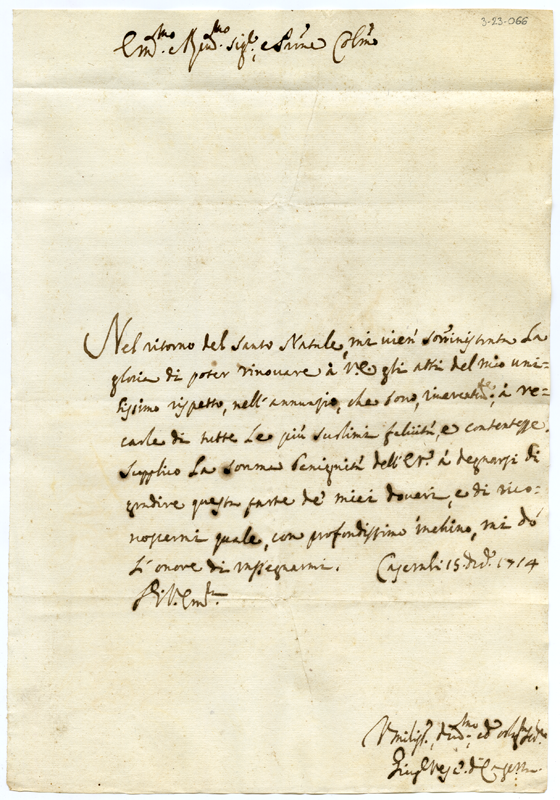 3-23-066
Em.mo e Rev.mo Sig.r, e Prne Colmo
Nel ritorno del Santo Natale, mi vien somministrata la
gloria di poter rinovare à VE gli atti del mio umi=
lissimo rispetto, nell'annunzio, che sono, à re=
carle di tutte le più sublimi felicità, e contentezze.
Supplico la somma benignità dell'E.V. à degnarsi di
gradire questa parte de' miei doveri, e di rico=
noscermi quale, con profondissimo inchino, mi dò
l'onore di rassegnarmi. 15 1714
Di V. Em.
Umiliss., ed